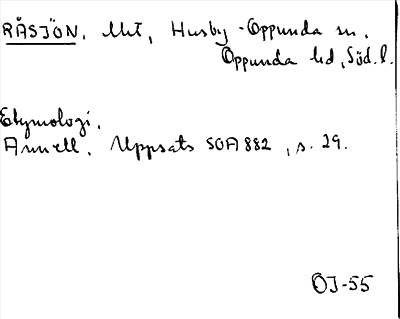 RÅSJÖN. Utt, Husby-Oppunda sn.
Oppunda hd, Söd. l.
Etymologi.
Annell. Uppsats SOA 882, s. 29.
OJ-55